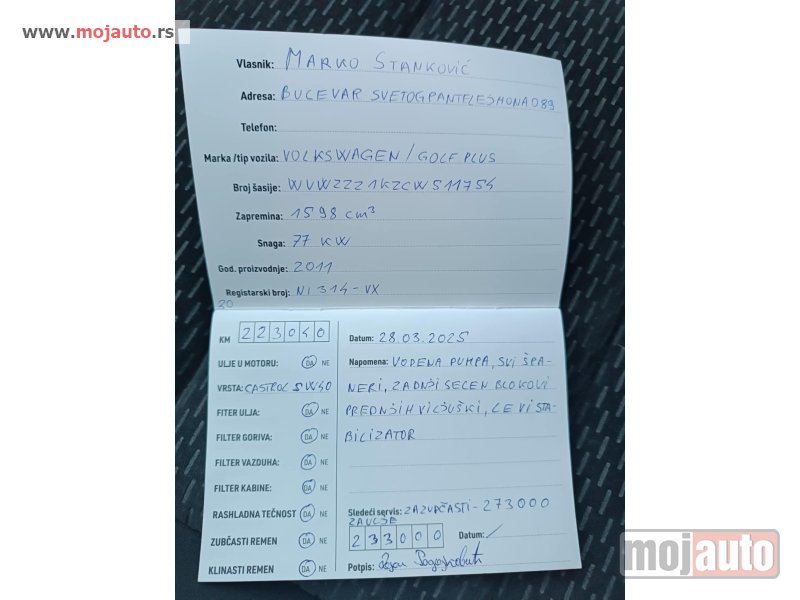 www.mojauto.rs
Vlasnik: MARKO STANKOVIĆ
Adresa: BULEVAR SVETOG PANTELEJMONA D89
Telefon:
Marka /tip vozila: VOLKSWAGEN / GOLF PLUS
Broj šasije: WVWZZZ1KZCW511754
Zapremina: 1598 cm³
Snaga: 77 KW
God. proizvodnje: 2011
Registarski broj: NI 314-VX
20
KM 223040
Datum: 28.03.2025
ULJE U MOTORU: DA NE
Napomena: VODENA PUMPA, SVI ŠPA-
VRSTA: CASTROL 5W40
NERI, ZADNJI SELEN BLOKOVI
FITER ULJA: DA NE
PREDNJIH VILJUŠKI, LEVI STA-
FILTER GORIVA: DA NE
BILIZATOR
FILTER VAZDUHA: DA NE
FILTER KABINE: DA NE
Sledeći servis: ZA ZUPČASTI - 273000
RASHLADNA TEČNOST DA NE
ZA ULJE
233000 Datum: /
ZUBČASTI REMEN DA NE
Potpis:
KLINASTI REMEN DA NE
mojauto